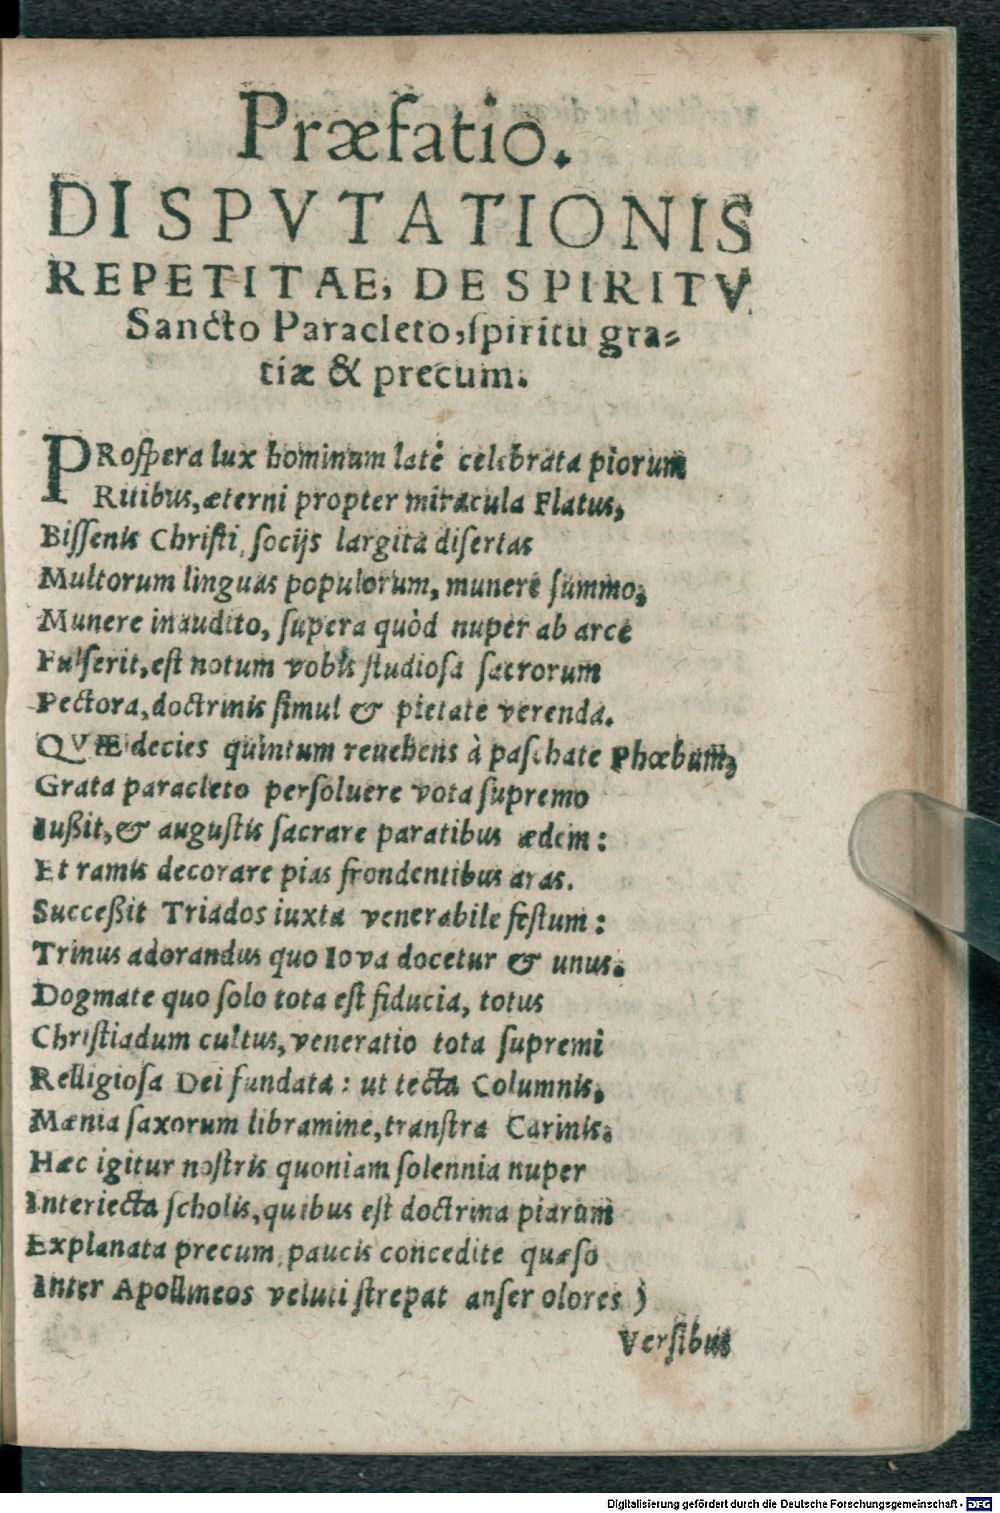 Præfatio.
DISPVTATIONIS
REPETITAE, DE SPIRITV
Sancto Paracleto, ſpiritu gra-
tiæ & precum.
PRoſpera lux hominum latè celebrata piorum
Ritibus, æterni propter miracula Flatus,
Biſſenis Chriſti ſocijs largita diſertas
Multorum linguas populorum, munere ſummo,
Munere inaudito, ſupera quòd nuper ab arce
Fulſerit, eſt notum vobis ſtudioſa ſacrorum
Pectora, doctrinis ſimul & pietate verenda.
QVÆ decies quintum reuehens à paſchate Phœbum,
Grata paracleto perſoluere vota ſupremo
Iußit, & auguſtis ſacrare paratibus ædem:
Et ramis decorare pias frondentibus aras.
Succeßit Triados iuxta venerabile feſtum:
Trinus adorandus quo Iova docetur & unus.
Dogmate quo ſolo tota eſt fiducia, totus
Chriſtiadum cultus, veneratio tota ſupremi
Relligioſa Dei fundata: ut tecta Columnis,
Mænia ſaxorum libramine, tranſtra Carinis.
Hæc igitur noſtris quoniam ſolennia nuper
Interiecta ſcholis, quibus eſt doctrina piarum
Explanata precum, paucis concedite quæſo
Inter Apollineos veluti ſtrepat anſer olores )
Verſibus
Digitalisierung gefördert durch die Deutsche Forschungsgemeinschaft - DFG